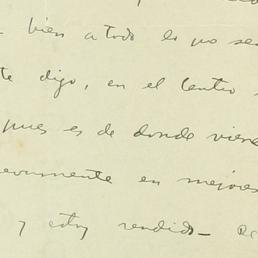 bien a todo lo po se
te digo, en el Centro
pues es de donde viene
evemente en mejores
y estoy rendido